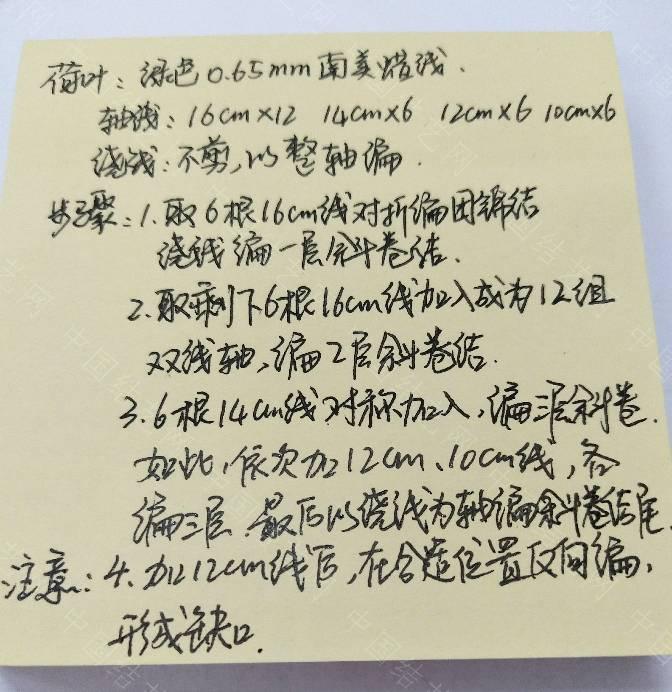 荷叶：绿色0.65mm南美蜡线.
轴线：16cm×12 14cm×6 12cm×6 10cm×6
绕线：不剪，以整轴编.
步骤：1.取6根16cm线对折编团锦结
绕线编一层斜卷结.
2.取剩下6根16cm线加入成为12组
双线轴，编2层斜卷结.
3.6根14cm线对称加入，编三层斜卷.
如此，依次加12cm、10cm线，各
编三层.最后以绕线为轴编斜卷结尾.
注意：4.加12cm线后，在合适位置反向编，
形成缺口.